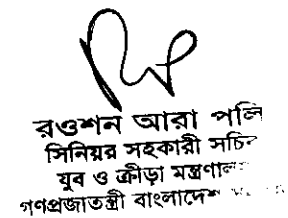 রওশন আরা পলি
সিনিয়র সহকারী সচিব
যুব ও ক্রীড়া মন্ত্রণালয়
গণপ্রজাতন্ত্রী বাংলাদেশ